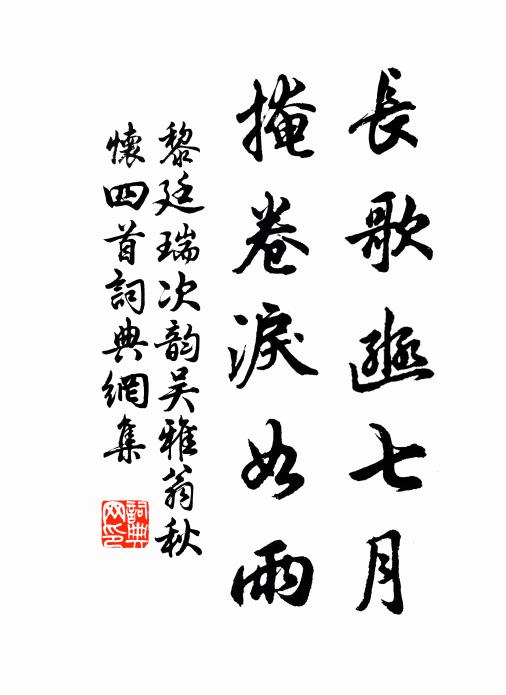 長歌豳七月
掩卷淚如雨
黎廷瑞次韵吴雅翁秋
懷四首詞典網集
詞典
网印